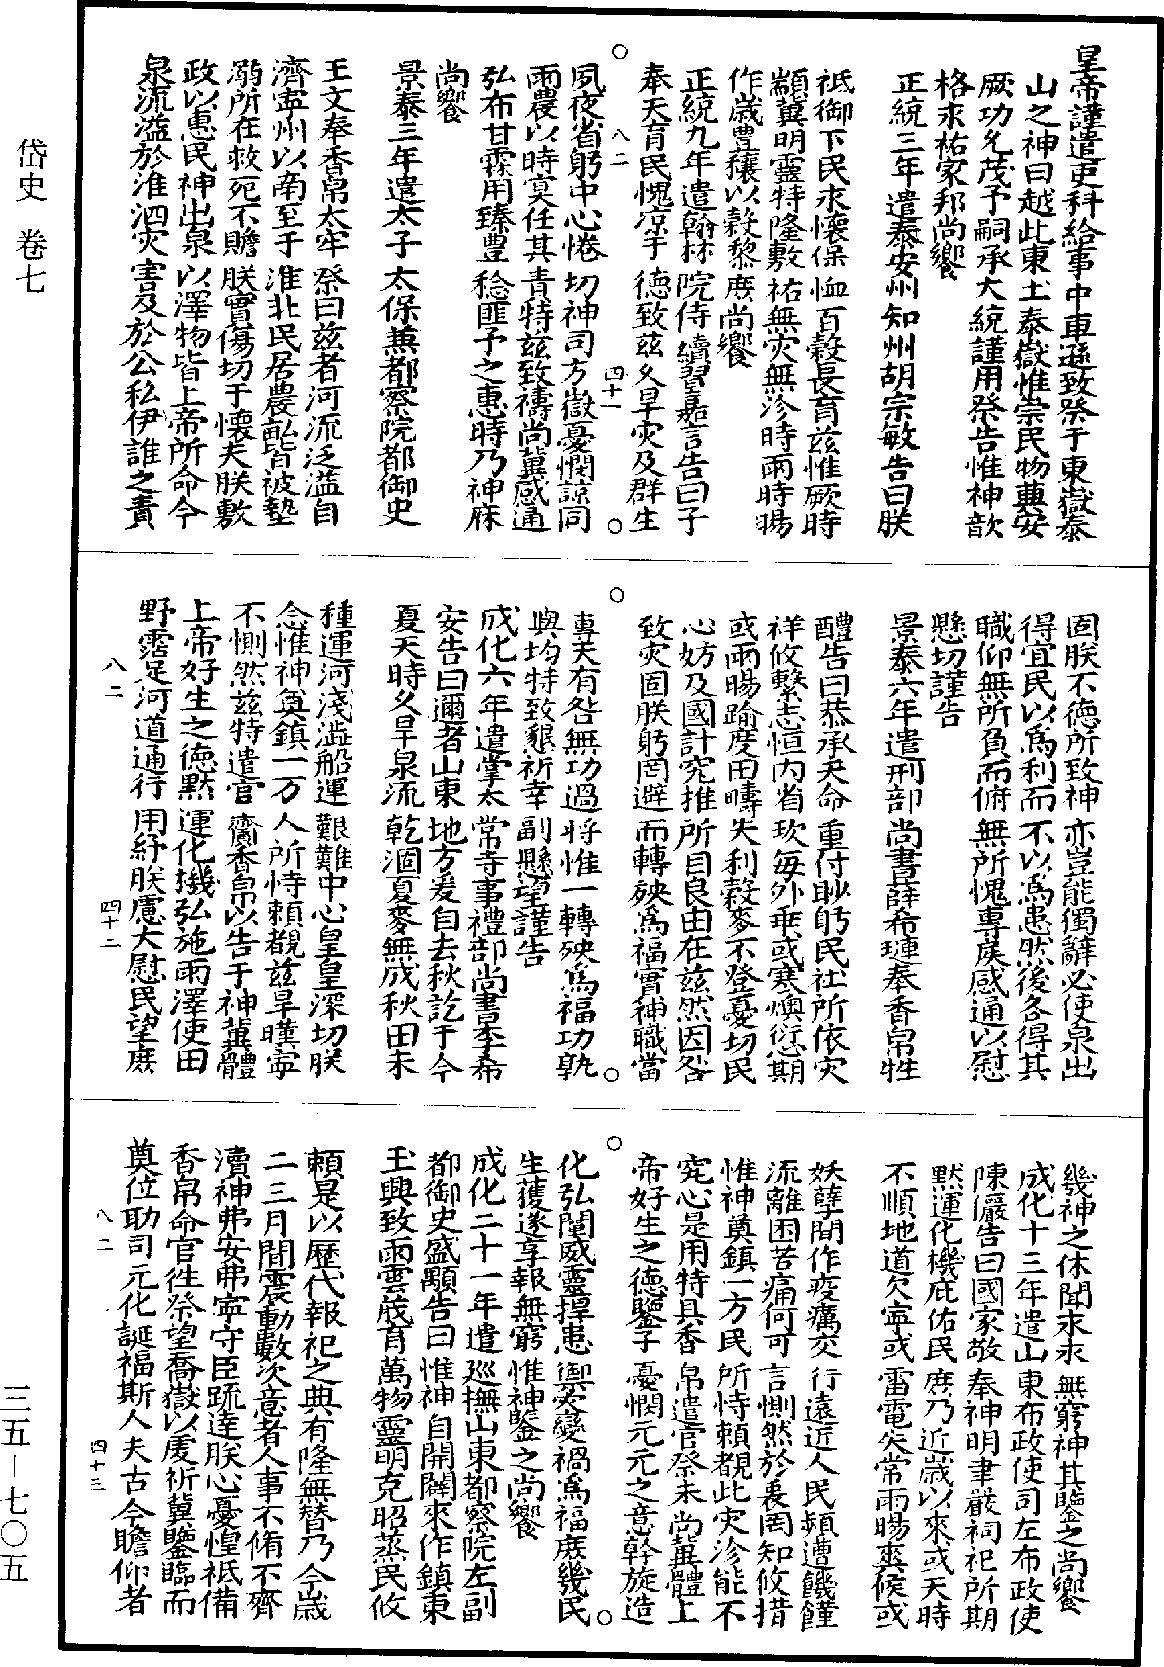 皇帝謹遣吏科給事中車遜致祭于東嶽泰
山之神曰越此東土泰嶽惟宗民物奠安
厥功允茂予嗣承大統謹用祭告惟神歆
格永祐家邦尚饗
正統三年遣泰安州知州胡宗敏告曰朕
祗御下民永懷保恤百穀長育茲惟厥時
顓冀明靈特隆敷祐無灾無沴時雨時暘
作歲豊穰以穀黎庶尚饗
正統九年遣翰林院侍續習嘉言告曰予
奉天育民愧凉于德致茲久旱灾及群生
夙夜省躬中心惓切神司方嶽憂憫諒同
雨農以時寔任其青特茲致禱尚冀感通
弘布甘霖用臻豊稔匪予之惠時乃神庥
尚饗
景泰三年遣太子太保兼都察院都御史
王文奉香帛太牢祭曰茲者河流泛溢自
濟寧州以南至于淮北民居農畝皆被墊
溺所在救死不贍朕實傷切于懷夫朕敷
政以惠民神出泉以澤物皆上帝所命今
泉流溢於淮泗灾害及於公私伊誰之責
固朕不德所致神亦豈能獨辭必使泉出
得宜民以爲利而不以爲患然後各得其
職仰無所負而俯無所愧專俟感通以慰
懸切謹告
景泰六年遣刑部尚書薛希璉奉香帛牲
醴告曰恭承天命重付眇躬民社所依灾
祥攸繫志恒内省玫每外垂或寒燠愆期
或雨暘踰度田疇失利穀麥不登憂切民
心妨及國計究推所自良由在茲然因咎
致灾固朕躬罔避而轉殃爲福實神職當
專夫有咎無功過將惟一轉殃爲福功孰
與均特致懇祈幸副懸望謹告
成化六年遣掌太常寺事禮部尚書李希
安告曰邇者山東地方爰自去秋訖于今
夏天時久旱泉流乾涸夏麥無成秋田未
種運河淺澁船運艱難中心皇皇深切朕
念惟神奠鎮一方人所恃賴覩茲旱暵寧
不惻然茲特遣官齎香帛以告于神冀體
上帝好生之德黙運化機弘施雨澤使田
野霑足河道通行用紓朕慮大慰民望庶
幾神之休聞永永無窮神其鑒之尚饗
成化十三年遣山東布政使司左布政使
陳儼告曰國家敬奉神明聿嚴祠祀所期
黙運化機庇佑民庶乃近歲以來或天時
不順地道欠寧或雷電失常雨暘爽候或
妖孽間作疫癘交行遠近人民頻遭饑饉
流離困苦痛何可言惻然於衷罔知攸措
惟神奠鎮一方民所恃賴覩此灾沴能不
究心是用特具香帛遣官祭未尚冀體上
帝好生之德鑒予憂憫元元之意幹旋造
化弘闡威靈捍患禦灾變禍爲福庶幾民
生獲遂享報無窮惟神鑒之尚饗
成化二十一年遣巡撫山東都察院左副
都御史盛顒告曰惟神自開闢來作鎮東
土興致雨雲茂育萬物靈明克昭蒸民攸
賴是以歷代報祀之典有隆無替乃今歲
二三月間震動數次意者人事不脩不齊
瀆神弗安弗寧守臣疏達朕心憂惶祗備
香帛命官徃祭望喬嶽以虔祈冀鑒臨而
奠位助司元化誕福斯人夫古今瞻仰者
八二
四十一
八二
四十二
八二
四十三
岱史 卷七
三五—七〇五